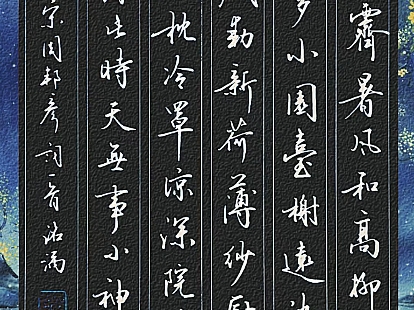 霽暑風和高柳
多小園臺榭遠池
動新荷薄紗廚
枕冷簟涼深院
此時天無事小神
宋周邦彥詞一首